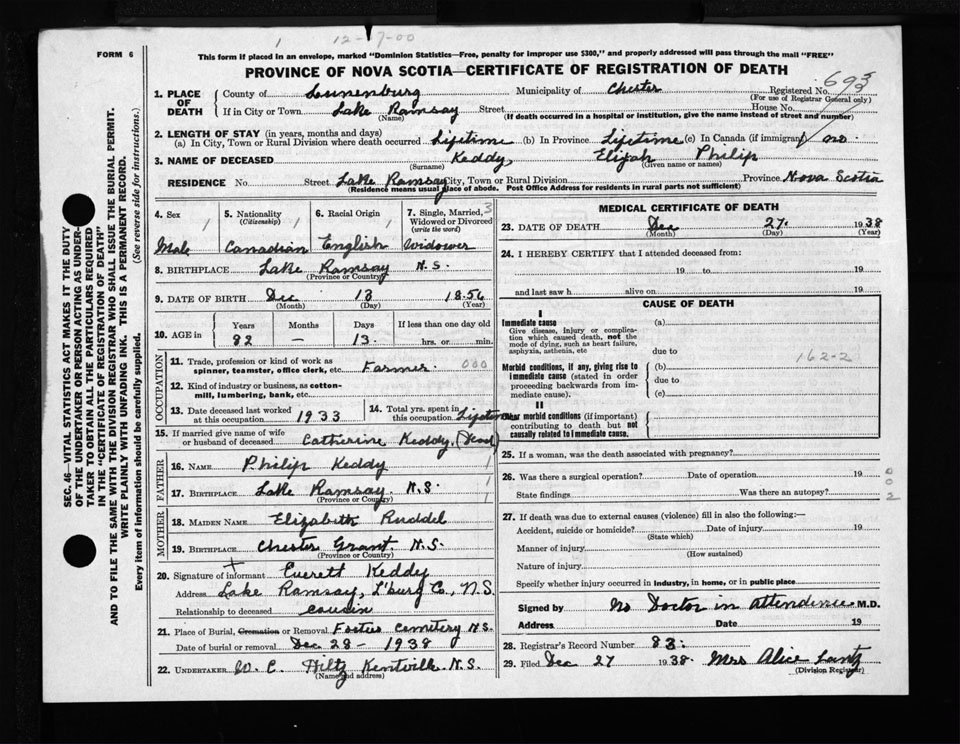 1 12-7-00
FORM 6
This form if placed in an envelope, marked "Dominion Statistics—Free, penalty for improper use $300," and properly addressed will pass through the mail "FREE"
PROVINCE OF NOVA SCOTIA—CERTIFICATE OF REGISTRATION OF DEATH
693
SEC. 46—VITAL STATISTICS ACT MAKES IT THE DUTY
OF THE UNDERTAKER OR PERSON ACTING AS UNDER-
TAKER TO OBTAIN ALL THE PARTICULARS REQUIRED
IN THE "CERTIFICATE OF REGISTRATION OF DEATH"
AND TO FILE THE SAME WITH THE DIVISION REGISTRAR WHO SHALL ISSUE THE BURIAL PERMIT.
WRITE PLAINLY WITH UNFADING INK. THIS IS A PERMANENT RECORD.
Every item of information should be carefully supplied. (See reverse side for instructions.)
1. PLACE OF DEATH County of Lunenburg Municipality of Chester Registered No.
(For use of Registrar General only)
If in City or Town Lake Ramsay Street House No.
(Name) (If death occurred in a hospital or institution, give the name instead of street and number)
2. LENGTH OF STAY (in years, months and days)
(a) In City, Town or Rural Division where death occurred Lifetime (b) In Province Lifetime (c) In Canada (if immigrant) no
3. NAME OF DECEASED Keddy, Elijah Philip
(Surname) (Given name or names)
RESIDENCE No. Street Lake Ramsay City, Town or Rural Division Province Nova Scotia
(Residence means usual place of abode. Post Office Address for residents in rural parts not sufficient)
4. Sex 5. Nationality 6. Racial Origin 7. Single, Married, 3
(Citizenship) Widowed or Divorced
1 1 1 (write the word)
Male Canadian English Widower
8. BIRTHPLACE Lake Ramsay N.S.
(Province or Country)
9. DATE OF BIRTH Dec 13 1856
(Month) (Day) (Year)
10. AGE in Years Months Days If less than one day old
82 — 13. hrs. or min.
OCCUPATION
11. Trade, profession or kind of work as
spinner, teamster, office clerk, etc. Farmer. 000
12. Kind of industry or business, as cotton-
mill, lumbering, bank, etc.
13. Date deceased last worked
at this occupation 1933
14. Total yrs. spent in
this occupation Lifetime
15. If married give name of wife
or husband of deceased Catherine Keddy, (Dead)
FATHER
16. NAME Philip Keddy 1
17. BIRTHPLACE Lake Ramsay N.S. 1
(Province or Country) 1
MOTHER
18. MAIDEN NAME Elizabeth Ruddel
19. BIRTHPLACE Chester Grant N.S.
(Province or Country)
20. Signature of informant Everett Keddy
Address Lake Ramsay, L'burg Co., N.S.
Relationship to deceased cousin
21. Place of Burial, Cremation or Removal Cemetery N.S.
Date of burial or removal Dec 28 - 1938
22. UNDERTAKER W. C. Hiltz Kentville N.S.
(Name and address)
MEDICAL CERTIFICATE OF DEATH
23. DATE OF DEATH Dec 27. 1938
(Month) (Day) (Year)
24. I HEREBY CERTIFY that I attended deceased from:
19 to 19
and last saw h alive on 19
CAUSE OF DEATH
I
Immediate cause (a)
Give disease, injury or complica-
tion which caused death, not the
mode of dying, such as heart failure,
asphyxia, asthenia, etc due to
162-2
Morbid conditions, if any, giving rise to (b)
immediate cause (stated in order
proceeding backwards from im- due to
mediate cause). (c)
II
Other morbid conditions (if important)
contributing to death but not
causally related to immediate cause.
25. If a woman, was the death associated with pregnancy?
26. Was there a surgical operation? Date of operation 19
State findings Was there an autopsy?
002
27. If death was due to external causes (violence) fill in also the following:—
Accident, suicide or homicide? Date of injury 19
(State which)
Manner of injury
(How sustained)
Nature of injury
Specify whether injury occurred in industry, in home, or in public place
Signed by No Doctor in attendence M.D.
Address Date 19
28. Registrar's Record Number 83.
29. Filed Dec 27 1938. Mrs Alice Lantz
(Division Registrar)